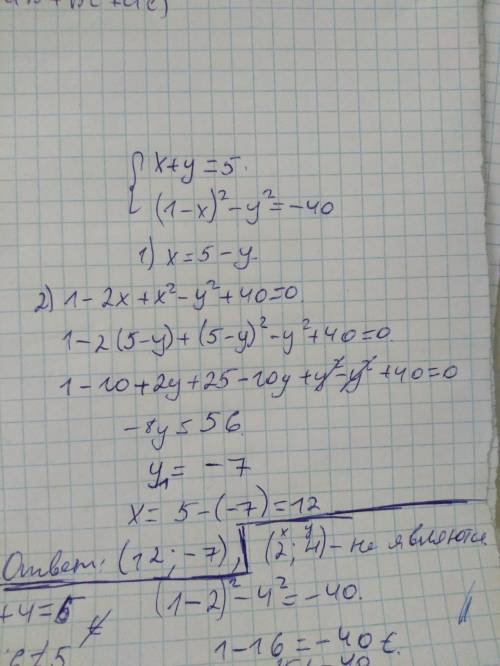 x+y=5.
(1-x)²-y²=-40
1) x=5-y.
2) 1-2x+x²-y²+40=0.
1-2(5-y)+(5-y)²-y²+40=0.
1-10+2y+25-10y+y²-y²+40=0
-8y=56.
y₁=-7
x=5-(-7)=12
Ответ: (12;-7), (2;4)-не являются
x y
+4=6 (1-2)²-4²=-40.
≠5 1-16=-40